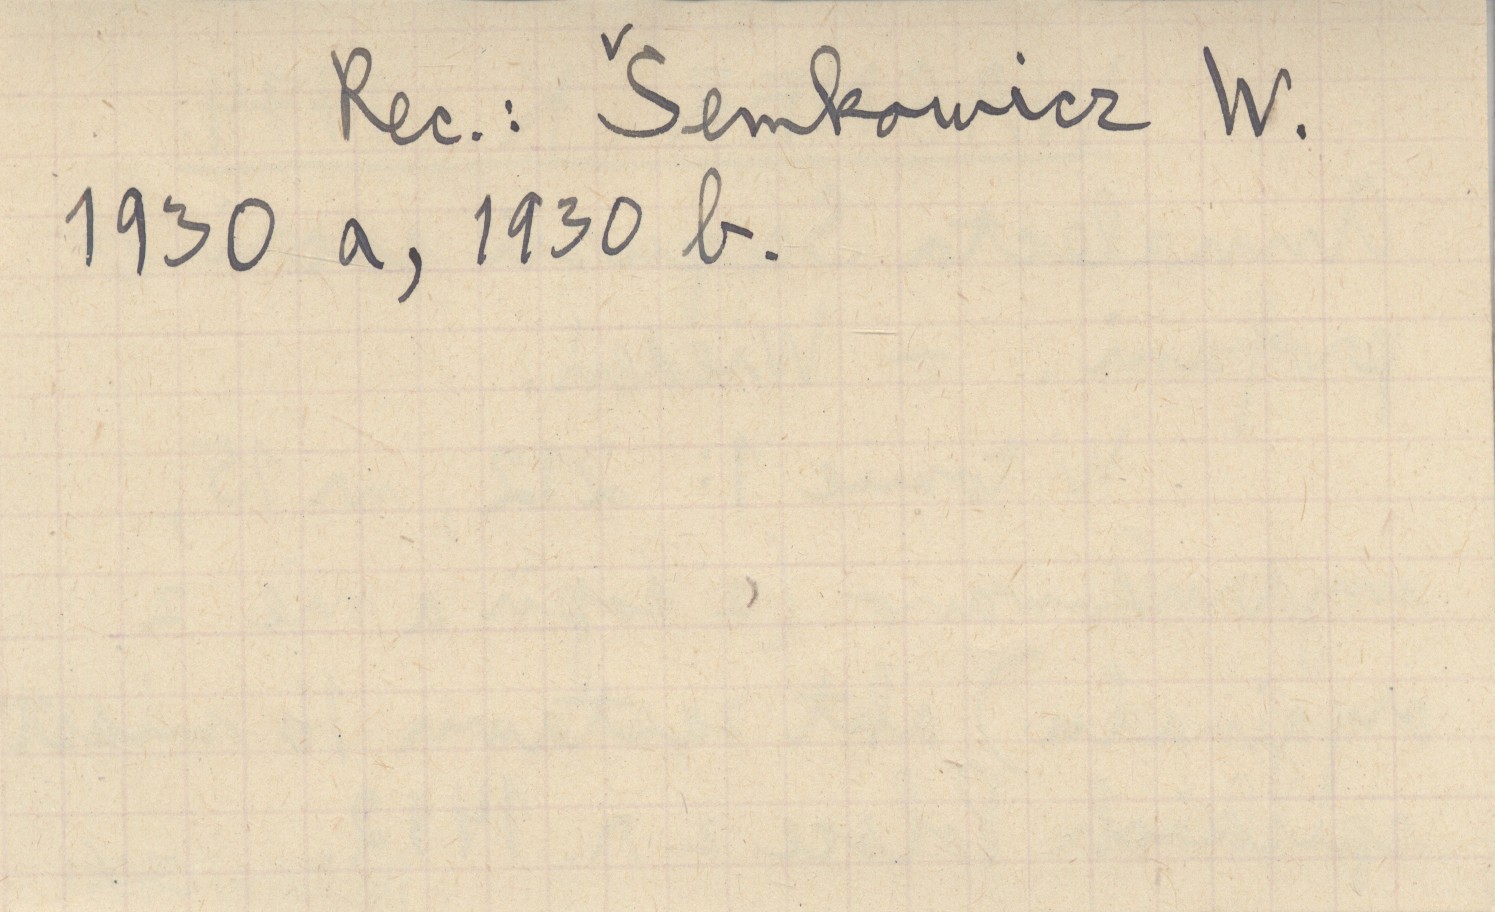 Rec.: Semkowicz W.
1930 a, 1930 b.